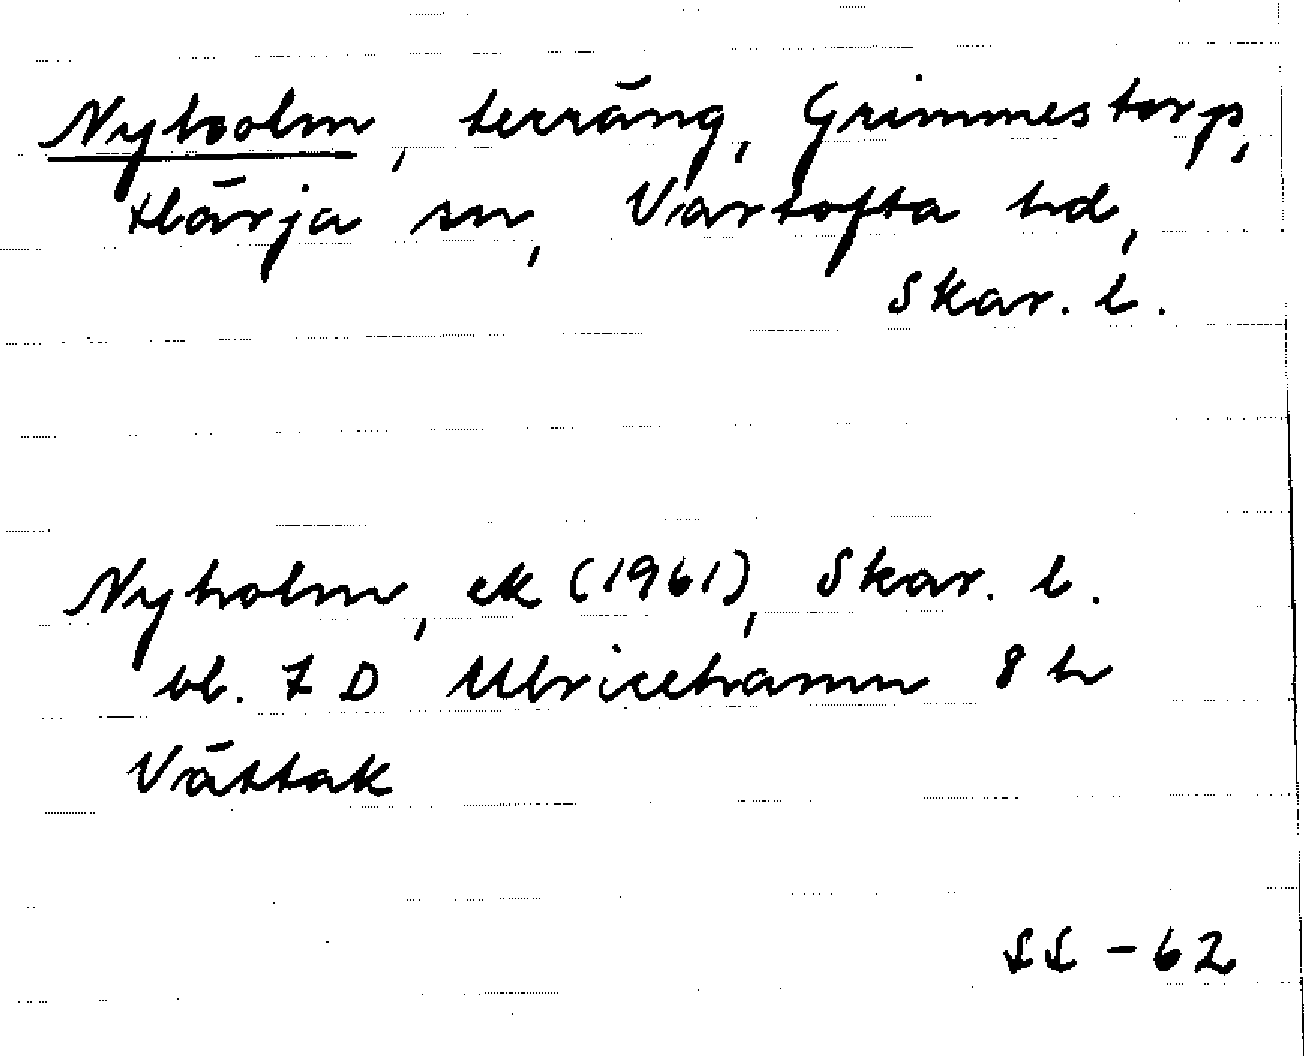 Nyholm, terräng, Grimmestorp,
Härja sn, Vartofta hd,
Skar. l.
Nyholm, ek (1961), Skar. l.
bl. 7 D Ulricehamn 8 h
Vättak
SL - 62